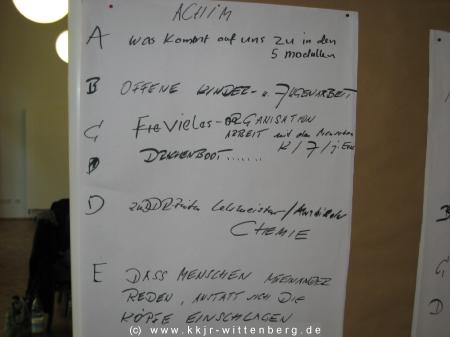 ACHIM
A was kommt auf uns zu in den
5 Modellen
B OFFENE KINDER- u. JUGENARBEIT
C ORGANISATION
ARBEIT mit den Menschen
K/J/j Erw
D DRACHENBOOT.......
D zu DDR Zeiten Lehrmeister/
CHEMIE
E DASS MENSCHEN MITEINANDER
REDEN, ANSTATT SICH DIE
KÖPFE EINSCHLAGEN
B
C
D
(c) www.kkjr-wittenberg.de